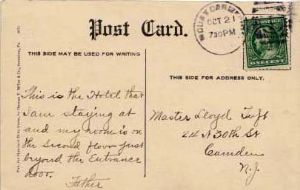 Post Card.
THIS SIDE MAY BE USED FOR WRITING
THIS SIDE FOR ADDRESS ONLY.
MOUNT CARMEL
OCT 21
730PM
ONE CENT
This is the Hotel that
I am staying at
and my room is on
the second floor just
beyond the Entrance
door.
Father
Master Lloyd
24 N 30th St
Camden
N.J.